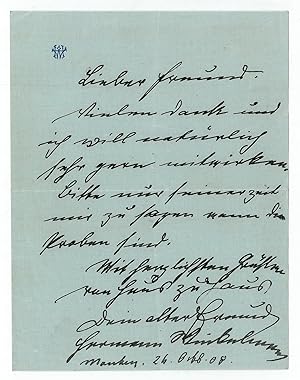 Lieber Freund.
Vielen Dank und
ich will natürlich
sehr gern mitwirken.
Bitte nur seiner Zeit
mir zu sagen wann die
Proben sind.
Mit herzlichsten Grüßen
von Haus zu Haus
Dein alter Freund
Hermann Winkelmann
26. Octb. 08.